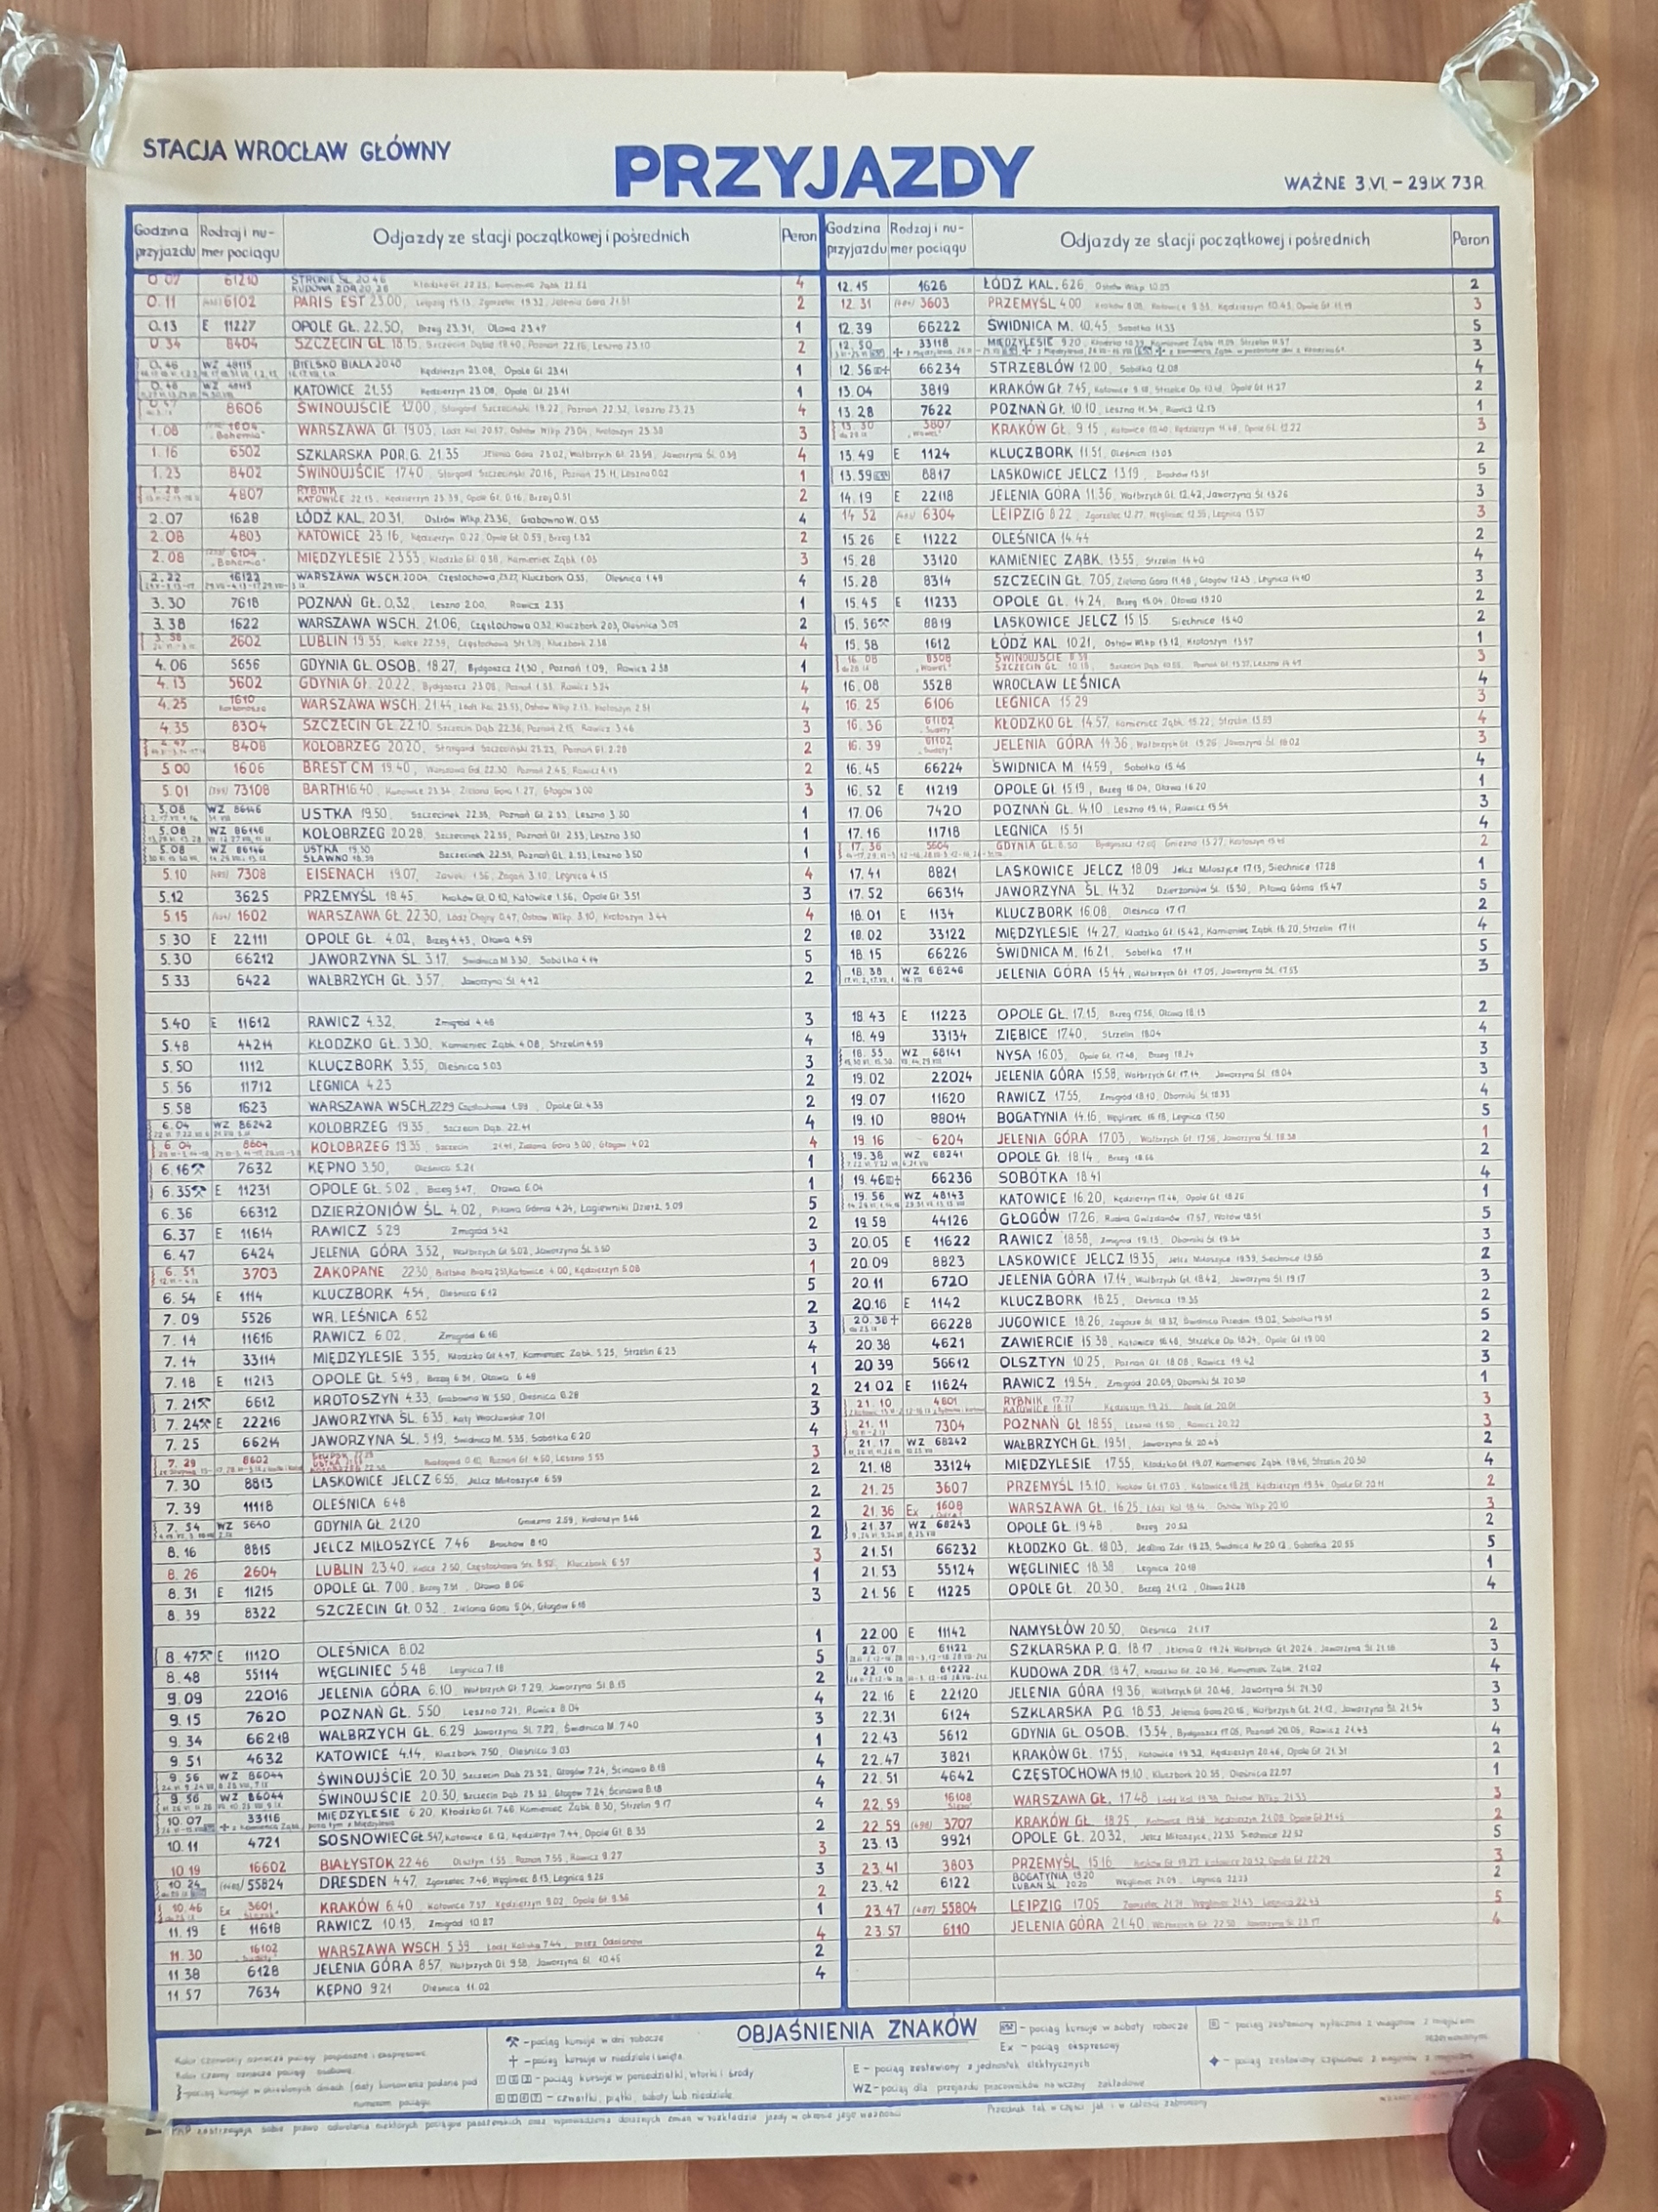 STACJA WROCŁAW GŁÓWNY
PRZYJAZDY
WAŻNE 3.VI. – 29 IX 73R.
Godzina przyjazdu Rodzaj i numer pociągu Odjazdy ze stacji początkowej i pośrednich Peron
0.07 61210 STRONIE ŚL. 20.46 KUDOWA ZDR. 20.26 4
0.11 6102 PARIS EST 23.00, Leipzig 15.15, Zgorzelec 19.32, Jelenia Góra 21.51 2
0.13 E 11227 OPOLE GŁ. 22.50, Brzeg 23.31, Oława 23.47 1
0.34 8404 SZCZECIN GŁ 18.15, Szczecin Dąbie 18.40, Poznań 22.16, Leszno 23.10 2
0.46 WZ 48115 BIELSKO BIAŁA 20.40 Kędzierzyn 23.08, Opole Gł 23.41 1
0.46 WZ 48113 KATOWICE 21.55 Kędzierzyn 23.08, Opole Gł 23.41 1
8606 ŚWINOUJŚCIE 17.00, Stargard Szczeciński 19.22, Poznań 22.32, Leszno 23.23 4
1.08 1604 „Bohemia" WARSZAWA GŁ. 19.03, Łódź Kal. 20.57, Ostrów Wlkp 23.04, Krotoszyn 23.38 3
1.16 6502 SZKLARSKA POR.G. 21.35 Jelenia Góra 23.02, Wałbrzych Gł. 23.59, Jaworzyna Śl. 0.39 4
1.23 8402 ŚWINOUJŚCIE 17.40, Stargard Szczeciński 20.16, Poznań 23.11, Leszno 0.02 1
1.28 4807 RYBNIK KATOWICE 22.15, Kędzierzyn 23.39, Opole Gł. 0.16, Brzeg 0.51 2
2.07 1628 ŁÓDŹ KAL. 20.31, Ostrów Wlkp. 23.36, Grabowno W. 0.55 4
2.08 4803 KATOWICE 23.16, Kędzierzyn 0.22, Opole Gł 0.59, Brzeg 1.32 2
2.08 6104 „Bohemia" MIĘDZYLESIE 23.53, Kłodzko Gł. 0.38, Kamieniec Ząbk 1.03 3
2.22 16122 WARSZAWA WSCH. 20.04, Częstochowa 23.27, Kluczbork 0.53, Oleśnica 1.49 4
3.30 7618 POZNAŃ GŁ. 0.32, Leszno 2.00, Rawicz 2.33 1
3.38 1622 WARSZAWA WSCH. 21.06, Częstochowa 0.32, Kluczbork 2.03, Oleśnica 3.09 2
3.58 2602 LUBLIN 19.55, Kielce 22.54, Kluczbork 2.38 4
4.06 5656 GDYNIA GŁ. OSOB. 18.27, Bydgoszcz 21.50, Poznań 1.09, Rawicz 2.58 1
4.13 5602 GDYNIA GŁ. 20.22, Bydgoszcz 23.05, Poznań 1.53, Rawicz 3.24 4
4.25 1610 Karkonosze WARSZAWA WSCH. 21.44, Łódź Kal. 23.53, Ostrów Wlkp 2.13, Krotoszyn 2.51 4
4.35 8304 SZCZECIN GŁ. 22.10, Szczecin Dąb. 22.36, Poznań 2.15, Rawicz 3.46 3
4.47 8408 KOŁOBRZEG 20.20, Stargard Szczeciński 23.23, Poznań Gł. 2.28 2
5.00 1606 BREST CM 19.40, Warszawa Gd. 22.30, Poznań 2.45, Rawicz 4.13 2
5.01 73108 BARTH 16.40, Kunowice 23.54, Zielona Góra 1.27, Głogów 3.00 3
5.08 WZ 86146 USTKA 19.50, Szczecinek 22.55, Poznań Gł. 2.53, Leszno 3.50 1
5.08 WZ 86146 KOŁOBRZEG 20.28, Szczecinek 22.55, Poznań Gł. 2.53, Leszno 3.50 1
5.08 WZ 86146 USTKA 19.50 SŁAWNO 18.39 Szczecinek 22.55, Poznań GŁ. 2.53, Leszno 3.50 1
5.10 7308 EISENACH 19.07, Zawidów 1.56, Żagań 3.10, Legnica 4.15 4
5.12 3625 PRZEMYŚL 18.45, Kraków Gł. 0.10, Katowice 1.56, Opole Gł 3.51 3
5.15 1602 WARSZAWA GŁ. 22.30, Łódź Chojny 0.47, Ostrów Wlkp. 3.10, Krotoszyn 3.44 4
5.30 E 22111 OPOLE GŁ. 4.02, Brzeg 4.43, Oława 4.59 2
5.30 66212 JAWORZYNA ŚL. 3.17, Świdnica M 3.30, Sobótka 4.14 5
5.33 6422 WAŁBRZYCH GŁ. 3.57, Jaworzyna Śl. 4.42 2
5.40 E 11612 RAWICZ 4.32, Żmigród 4.48 3
5.48 44214 KŁODZKO GŁ. 3.30, Kamieniec Ząbk. 4.08, Strzelin 4.59 4
5.50 1112 KLUCZBORK 3.55, Oleśnica 5.03 3
5.56 11712 LEGNICA 4.23 2
5.58 1623 WARSZAWA WSCH. 22.29 Częstochowa 1.59, Opole Gł. 4.39 2
6.04 WZ 86242 KOŁOBRZEG 19.35, Szczecin Dąb. 22.41 4
6.04 8604 KOŁOBRZEG 19.35 Szczecin 21.41, Zielona Góra 3.00, Głogów 4.02 4
6.16 ⚒ 7632 KĘPNO 3.50, Oleśnica 5.21 1
6.35 ⚒ E 11231 OPOLE GŁ. 5.02, Brzeg 5.47, Oława 6.04 1
6.36 66312 DZIERŻONIÓW ŚL. 4.02, Piława Górna 4.24, Łagiewniki Dzierż. 5.09 5
6.37 E 11614 RAWICZ 5.29 Żmigród 5.42 2
6.47 6424 JELENIA GÓRA 3.52, Wałbrzych Gł. 5.02, Jaworzyna Śl. 5.50 3
6.51 3703 ZAKOPANE 22.30, Bielsko Biała 2.51, Katowice 4.00, Kędzierzyn 5.08 1
6.54 E 1114 KLUCZBORK 4.54, Oleśnica 6.12 5
7.09 5526 WR. LEŚNICA 6.52 2
7.14 11616 RAWICZ 6.02, Żmigród 6.16 3
7.14 33114 MIĘDZYLESIE 3.35, Kłodzko Gł 4.47, Kamieniec Ząbk. 5.25, Strzelin 6.23 4
7.18 E 11213 OPOLE GŁ. 5.49, Brzeg 6.31, Oława 6.48 1
7.21 ⚒ 6612 KROTOSZYN 4.33, Grabowno W. 5.50, Oleśnica 6.28 2
7.24 ⚒ E 22216 JAWORZYNA ŚL. 6.35, Kąty Wrocławskie 7.01 3
7.25 66214 JAWORZYNA ŚL. 5.19, Świdnica M. 5.35, Sobótka 6.20 4
7.29 8602 3
7.30 8813 LASKOWICE JELCZ 6.55, Jelcz Miłoszyce 6.59 2
7.39 11118 OLEŚNICA 6.48 2
7.54 WZ 5640 GDYNIA GŁ. 21.20 Gniezno 2.59, Krotoszyn 5.46 2
8.16 8815 JELCZ MIŁOSZYCE 7.46 Brochów 8.10 2
8.26 2604 LUBLIN 23.40, Kielce 2.50, Kluczbork 6.57 3
8.31 E 11215 OPOLE GŁ. 7.00, Brzeg 7.51, Oława 8.06 1
8.39 8322 SZCZECIN GŁ. 0.32, Zielona Góra 5.04, Głogów 6.18 3
8.47 ⚒ E 11120 OLEŚNICA 8.02 1
8.48 55114 WĘGLINIEC 5.48 Legnica 7.18 5
9.09 22016 JELENIA GÓRA 6.10, Wałbrzych Gł. 7.29, Jaworzyna Śl. 8.13 2
9.15 7620 POZNAŃ GŁ. 5.50 Leszno 7.21, Rawicz 8.04 4
9.34 66218 WAŁBRZYCH GŁ. 6.29 Jaworzyna Śl. 7.22, Świdnica M. 7.40 3
9.51 4632 KATOWICE 4.14, Kluczbork 7.50, Oleśnica 9.03 1
9.56 WZ 86044 ŚWINOUJŚCIE 20.30, Szczecin Dąb. 23.32, Głogów 7.24, Ścinawa 8.18 4
9.56 WZ 86044 ŚWINOUJŚCIE 20.30, Szczecin Dąb 23.32, Głogów 7.24 Ścinawa 8.18 4
10.07 33116 MIĘDZYLESIE 6.20, Kłodzko Gł. 7.46 Kamieniec Ząbk. 8.30, Strzelin 9.17 4
10.11 4721 SOSNOWIEC GŁ. 5.47, Katowice 6.12, Kędzierzyn 7.44, Opole Gł. 8.35 2
10.19 16602 BIAŁYSTOK 22.46 Olsztyn 1.55 Poznań 7.55, Rawicz 9.27 3
10.24 55824 DRESDEN 4.47, Zgorzelec 7.46, Węgliniec 8.13, Legnica 9.25 3
10.46 Ex 3601 KRAKÓW 6.40 Katowice 7.57 Kędzierzyn 9.02 Opole Gł 9.36 2
11.19 E 11618 RAWICZ 10.13, Żmigród 10.27 1
11.30 16102 WARSZAWA WSCH 5.39 Łódź Kaliska 7.44, przez Odolanów 4
11.38 6128 JELENIA GÓRA 8.57, Wałbrzych Gł. 9.58, Jaworzyna Śl. 10.45 2
11.57 7634 KĘPNO 9.21 Oleśnica 11.02 4
Godzina przyjazdu Rodzaj i numer pociągu Odjazdy ze stacji początkowej i pośrednich Peron
12.15 1626 ŁÓDŹ KAL. 6.26, Ostrów Wlkp. 10.03 2
12.31 3603 PRZEMYŚL 4.00 Kraków 8.09, Katowice 9.53, Kędzierzyn 10.45, Opole Gł. 11.19 3
12.39 66222 ŚWIDNICA M. 10.45, Sobótka 11.53 5
12.50 33118 MIĘDZYLESIE 9.20 3
12.56 66234 STRZEBLÓW 12.00, Sobótka 12.08 4
13.04 3819 KRAKÓW GŁ. 7.45, Opole Gł 11.27 2
13.28 7622 POZNAŃ GŁ. 10.10, Leszno 11.34, Rawicz 12.13 1
13.30 3807 „Wawel" KRAKÓW GŁ. 9.15, Katowice 10.40, Kędzierzyn 11.48, Opole Gł. 12.22 3
13.49 E 1124 KLUCZBORK 11.51, Oleśnica 13.03 2
13.59 8817 LASKOWICE JELCZ 13.19, Brochów 13.51 5
14.19 E 22118 JELENIA GÓRA 11.36, Wałbrzych Gł. 12.42, Jaworzyna Śl. 13.26 3
14.52 6304 LEIPZIG 8.22, Zgorzelec 12.27, Węgliniec 12.55, Legnica 13.57 3
15.26 E 11222 OLEŚNICA 14.44 2
15.28 33120 KAMIENIEC ZĄBK. 13.55, Strzelin 14.40 4
15.28 8314 SZCZECIN GŁ. 7.05, Zielona Góra 11.48, Głogów 12.43, Legnica 14.10 3
15.45 E 11233 OPOLE GŁ. 14.24, Brzeg 15.04, Oława 15.20 2
15.56 ⚒ 8819 LASKOWICE JELCZ 15.15, Siechnice 15.40 2
15.58 1612 ŁÓDŹ KAL. 10.21, Ostrów Wlkp. 13.12, Krotoszyn 13.57 1
16.08 8308 „Wawel" ŚWINOUJŚCIE 8.39 SZCZECIN GŁ. 10.18, Poznań Gł. 13.37, Leszno 14.47 3
16.08 5528 WROCŁAW LEŚNICA 4
16.25 6106 LEGNICA 15.29 3
16.36 61102 KŁODZKO GŁ. 14.57, Kamieniec Ząbk. 15.22, Strzelin 15.59 4
16.39 61102 JELENIA GÓRA 14.36, Wałbrzych Gł. 15.26, Jaworzyna Śl. 16.02 3
16.45 66224 ŚWIDNICA M. 14.59, Sobótka 15.46 4
16.52 E 11219 OPOLE GŁ. 15.19, Brzeg 16.04, Oława 16.20 1
17.06 7420 POZNAŃ GŁ. 14.10, Leszno 15.14, Rawicz 15.54 3
17.16 11718 LEGNICA 15.51 4
17.36 5604 GDYNIA GŁ. 8.50 Bydgoszcz 12.00, Gniezno 13.27, Krotoszyn 15.46 2
17.41 8821 LASKOWICE JELCZ 18.09, Jelcz Miłoszyce 17.13, Siechnice 17.28 1
17.52 66314 JAWORZYNA ŚL. 14.32 Dzierżoniów Śl. 15.30, Piława Górna 15.47 5
18.01 E 1134 KLUCZBORK 16.08, Oleśnica 17.17 2
18.02 33122 MIĘDZYLESIE 14.27, Kłodzko Gł. 15.42, Kamieniec Ząbk. 16.20, Strzelin 17.11 4
18.15 66226 ŚWIDNICA M. 16.21, Sobótka 17.11 5
18.38 WZ 66246 JELENIA GÓRA 15.44, Wałbrzych Gł. 17.05, Jaworzyna Śl. 17.53 3
18.43 E 11223 OPOLE GŁ. 17.15, Brzeg 17.56, Oława 18.13 2
18.49 33134 ZIĘBICE 17.40, Strzelin 18.04 4
18.55 WZ 68141 NYSA 16.03, Opole Gł. 17.48, Brzeg 18.24 3
19.02 22024 JELENIA GÓRA 15.58, Wałbrzych Gł. 17.14, Jaworzyna Śl. 18.04 3
19.07 11620 RAWICZ 17.55, Żmigród 18.10, Oborniki Śl. 18.33 4
19.10 88014 BOGATYNIA 14.16, Węgliniec 16.18, Legnica 17.50 5
19.16 6204 JELENIA GÓRA 17.03, Wałbrzych Gł. 17.56, Jaworzyna Śl. 18.38 1
19.38 WZ 68241 OPOLE GŁ. 18.14, Brzeg 18.56 2
19.46 66236 SOBÓTKA 18.41 4
19.56 WZ 48143 KATOWICE 16.20, Kędzierzyn 17.46, Opole Gł. 18.26 1
19.58 44126 GŁOGÓW 17.26, Rudna Gwizdanów 17.57, Wołów 18.51 5
20.05 E 11622 RAWICZ 18.58, Żmigród 19.13, Oborniki Śl. 19.34 3
20.09 8823 LASKOWICE JELCZ 19.35, Jelcz Miłoszyce 19.39, Siechnice 19.55 2
20.11 6720 JELENIA GÓRA 17.14, Wałbrzych Gł. 18.42, Jaworzyna Śl. 19.17 3
20.16 E 1142 KLUCZBORK 18.25, Oleśnica 19.35 2
20.36 + 66228 JUGOWICE 18.26, Zagórze Śl. 18.37, Świdnica Przedm. 19.02, Sobótka 19.51 5
20.38 4621 ZAWIERCIE 15.38, Katowice 16.48, Strzelce Op. 18.24, Opole Gł 19.00 2
20.39 56612 OLSZTYN 10.25, Poznań Gł. 18.08, Rawicz 19.42 3
21.02 E 11624 RAWICZ 19.54, Żmigród 20.09, Oborniki Śl. 20.30 1
21.10 4801 RYBNIK 17.37 KATOWICE 18.11 Kędzierzyn 19.25 Opole Gł. 20.01 3
21.11 7304 POZNAŃ GŁ 18.55, Leszno 19.50, Rawicz 20.22 3
21.17 WZ 68242 WAŁBRZYCH GŁ. 19.51, Jaworzyna Śl. 20.43 2
21.18 33124 MIĘDZYLESIE 17.55, Kłodzko Gł. 19.07 Kamieniec Ząbk. 19.46, Strzelin 20.30 4
21.25 3607 PRZEMYŚL 13.10, Kraków Gł. 17.03, Katowice 18.28, Kędzierzyn 19.34, Opole Gł 20.11 2
21.36 Ex 1608 „Odra" WARSZAWA GŁ. 16.25, Łódź Kal 18.14, Ostrów Wlkp 20.10 3
21.37 WZ 68243 OPOLE GŁ. 19.48, Brzeg 20.52 2
21.51 66232 KŁODZKO GŁ. 18.03, Jedlina Zdr. 19.23, Sobótka 20.55 5
21.53 55124 WĘGLINIEC 18.38, Legnica 20.18 1
21.56 E 11225 OPOLE GŁ. 20.30, Brzeg 21.12, Oława 21.28 4
22.00 E 11142 NAMYSŁÓW 20.50, Oleśnica 21.17 2
22.07 61122 SZKLARSKA P.G. 18.17, Jelenia G. 19.24 Wałbrzych Gł. 20.24, Jaworzyna Śl. 21.18 3
22.10 61222 KUDOWA ZDR. 18.47, Kłodzko Gł. 20.36, Kamieniec Ząbk. 21.02 4
22.16 E 22120 JELENIA GÓRA 19.36, Wałbrzych Gł. 20.46, Jaworzyna Śl. 21.30 3
22.31 6124 SZKLARSKA P.G. 18.53, Jelenia Góra 20.16, Wałbrzych Gł. 21.12, Jaworzyna Śl. 21.54 3
22.43 5612 GDYNIA GŁ. OSOB. 13.54, Bydgoszcz 17.05, Poznań 20.05, Rawicz 21.43 4
22.47 3821 KRAKÓW GŁ. 17.55, Katowice 19.32, Kędzierzyn 20.46, Opole Gł. 21.31 2
22.51 4642 CZĘSTOCHOWA 19.10, Kluczbork 20.55, Oleśnica 22.07 1
22.59 16108 WARSZAWA GŁ. 17.48, Łódź Kal 19.38, Ostrów Wlkp. 21.33 3
22.59 3707 KRAKÓW GŁ. 18.25, Katowice 19.56, Kędzierzyn 21.08, Opole Gł 21.45 2
23.13 9921 OPOLE GŁ. 20.32, Jelcz Miłoszyce 22.33 Siechnice 22.52 5
23.41 3803 PRZEMYŚL 15.16 Kraków Gł 19.27, Katowice 20.52, Opole Gł. 22.29 3
23.42 6122 BOGATYNIA 19.20 LUBAŃ ŚL. 20.25 Węgliniec 21.09, Legnica 22.23 2
23.47 (487) 55804 LEIPZIG 17.05 Zgorzelec 21.14 Węgliniec 21.43 Legnica 22.43 5
23.57 6110 JELENIA GÓRA 21.40, Wałbrzych Gł. 22.30 Jaworzyna Śl. 23.17 4
OBJAŚNIENIA ZNAKÓW
Kolor czerwony oznacza pociągi pospieszne i ekspresowe
Kolor czarny oznacza pociągi osobowe
} – pociąg kursuje w określonych dniach (daty kursowania podane pod numerem pociągu
⚒ – pociąg kursuje w dni robocze
+ – pociąg kursuje w niedziele i święta
1 2 3 – pociąg kursuje w poniedziałki, wtorki i środy
4 5 6 7 – czwartki, piątki, soboty lub niedziele
– pociąg kursuje w soboty robocze
Ex – pociąg ekspresowy
E – pociąg zestawiony z jednostek elektrycznych
WZ – pociąg dla przejazdu pracowników na wczasy zakładowe
R – pociąg zestawiony wyłącznie z wagonów z miejscami rezerwowanymi
– pociąg zestawiony częściowo z wagonów z miejscami
PKP zastrzegają sobie prawo odwołania niektórych pociągów pasażerskich oraz wprowadzenia doraźnych zmian w rozkładzie jazdy w okresie jego ważności
Przedruk tak w części jak i w całości zabroniony